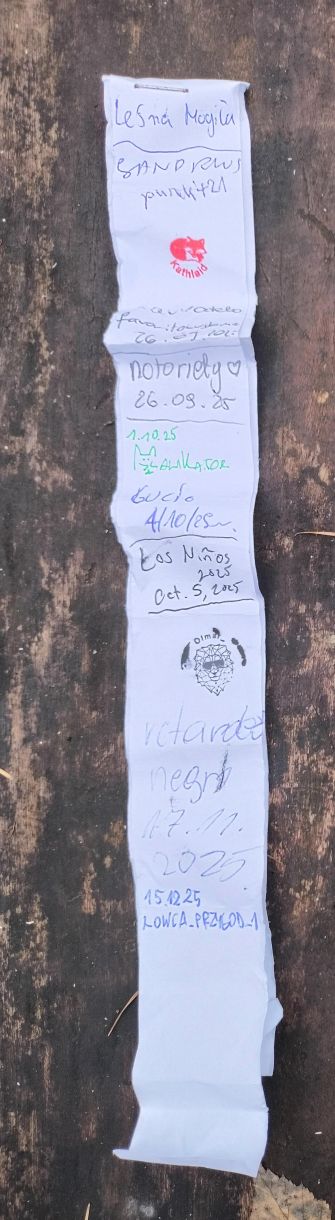 Leśna Mogiła
SANDRUS
punkt 21
Kathlaid
26.09.2025
notoriety♡
26.09.25
1.10.25
Gucio
4/10/25r.
Los Niños
2025
Oct. 5, 2025
Olmai_
retardos
negro
17.11.
2025
15.12.25
ŁOWCA_PRZYGOD_1